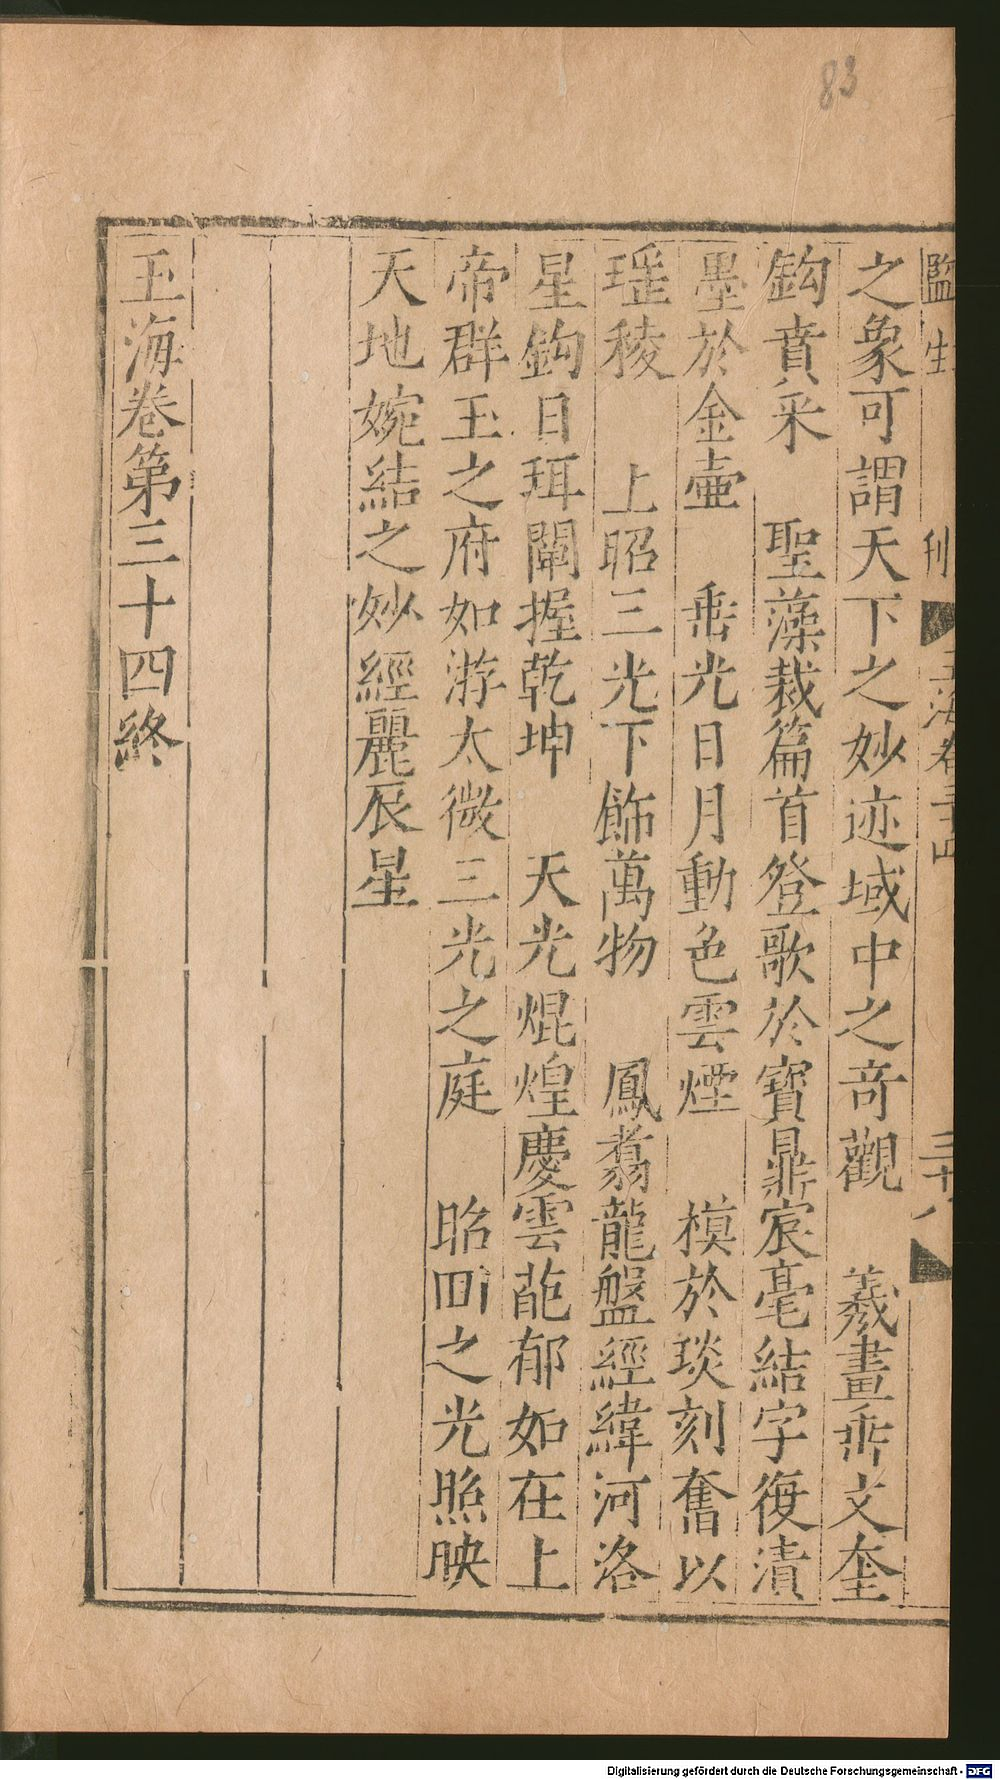 83
監生 刊 玉海卷三十四 三十八
之象可謂天下之妙迹域中之奇觀 羲畫垂文奎
鈎賁采 聖藻裁篇首登歌於寶鼎宸毫結字復漬
墨於金壷 垂光日月動色雲煙 模於琰刻奮以
瑶稜 上昭三光下飾萬物 鳳翥龍盤經緯河洛
星鈎日珥闡握乾坤 天光焜煌慶雲葩郁如在上
帝群玉之府如游太微三光之庭 昭回之光照映
天地婉結之妙經麗辰星
玉海卷第三十四終
Digitalisierung gefördert durch die Deutsche Forschungsgemeinschaft - DFG